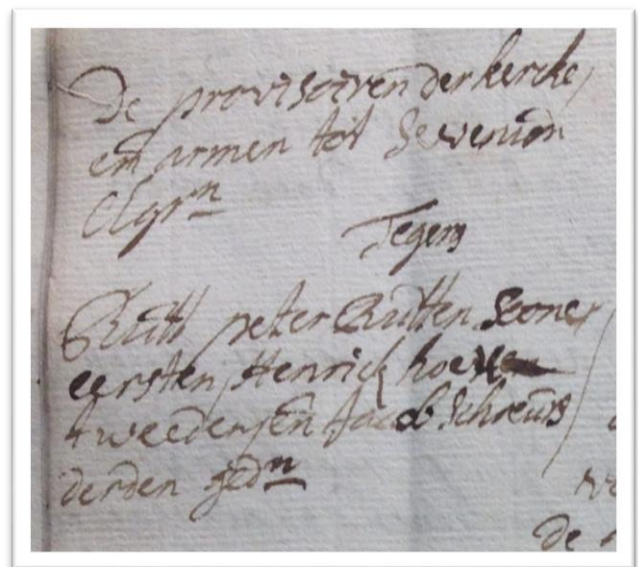 De provisoiren der kercke,
en armen tot Sevenum
Clgrn
Tegens
Rutt peter Rutten Soone
eersten, Henrick hoeven
tweeden, en Jacob Schreurs
derden gedn
de